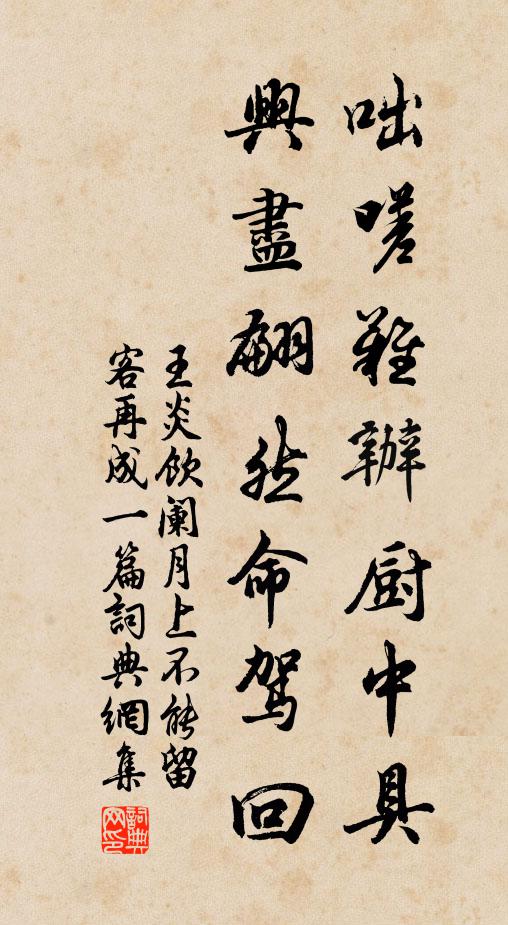 咄嗟難辦厨中具
興盡翩然命駕回
王炎飲阑月上不能留
客再成一篇詞典網集
詞典网印